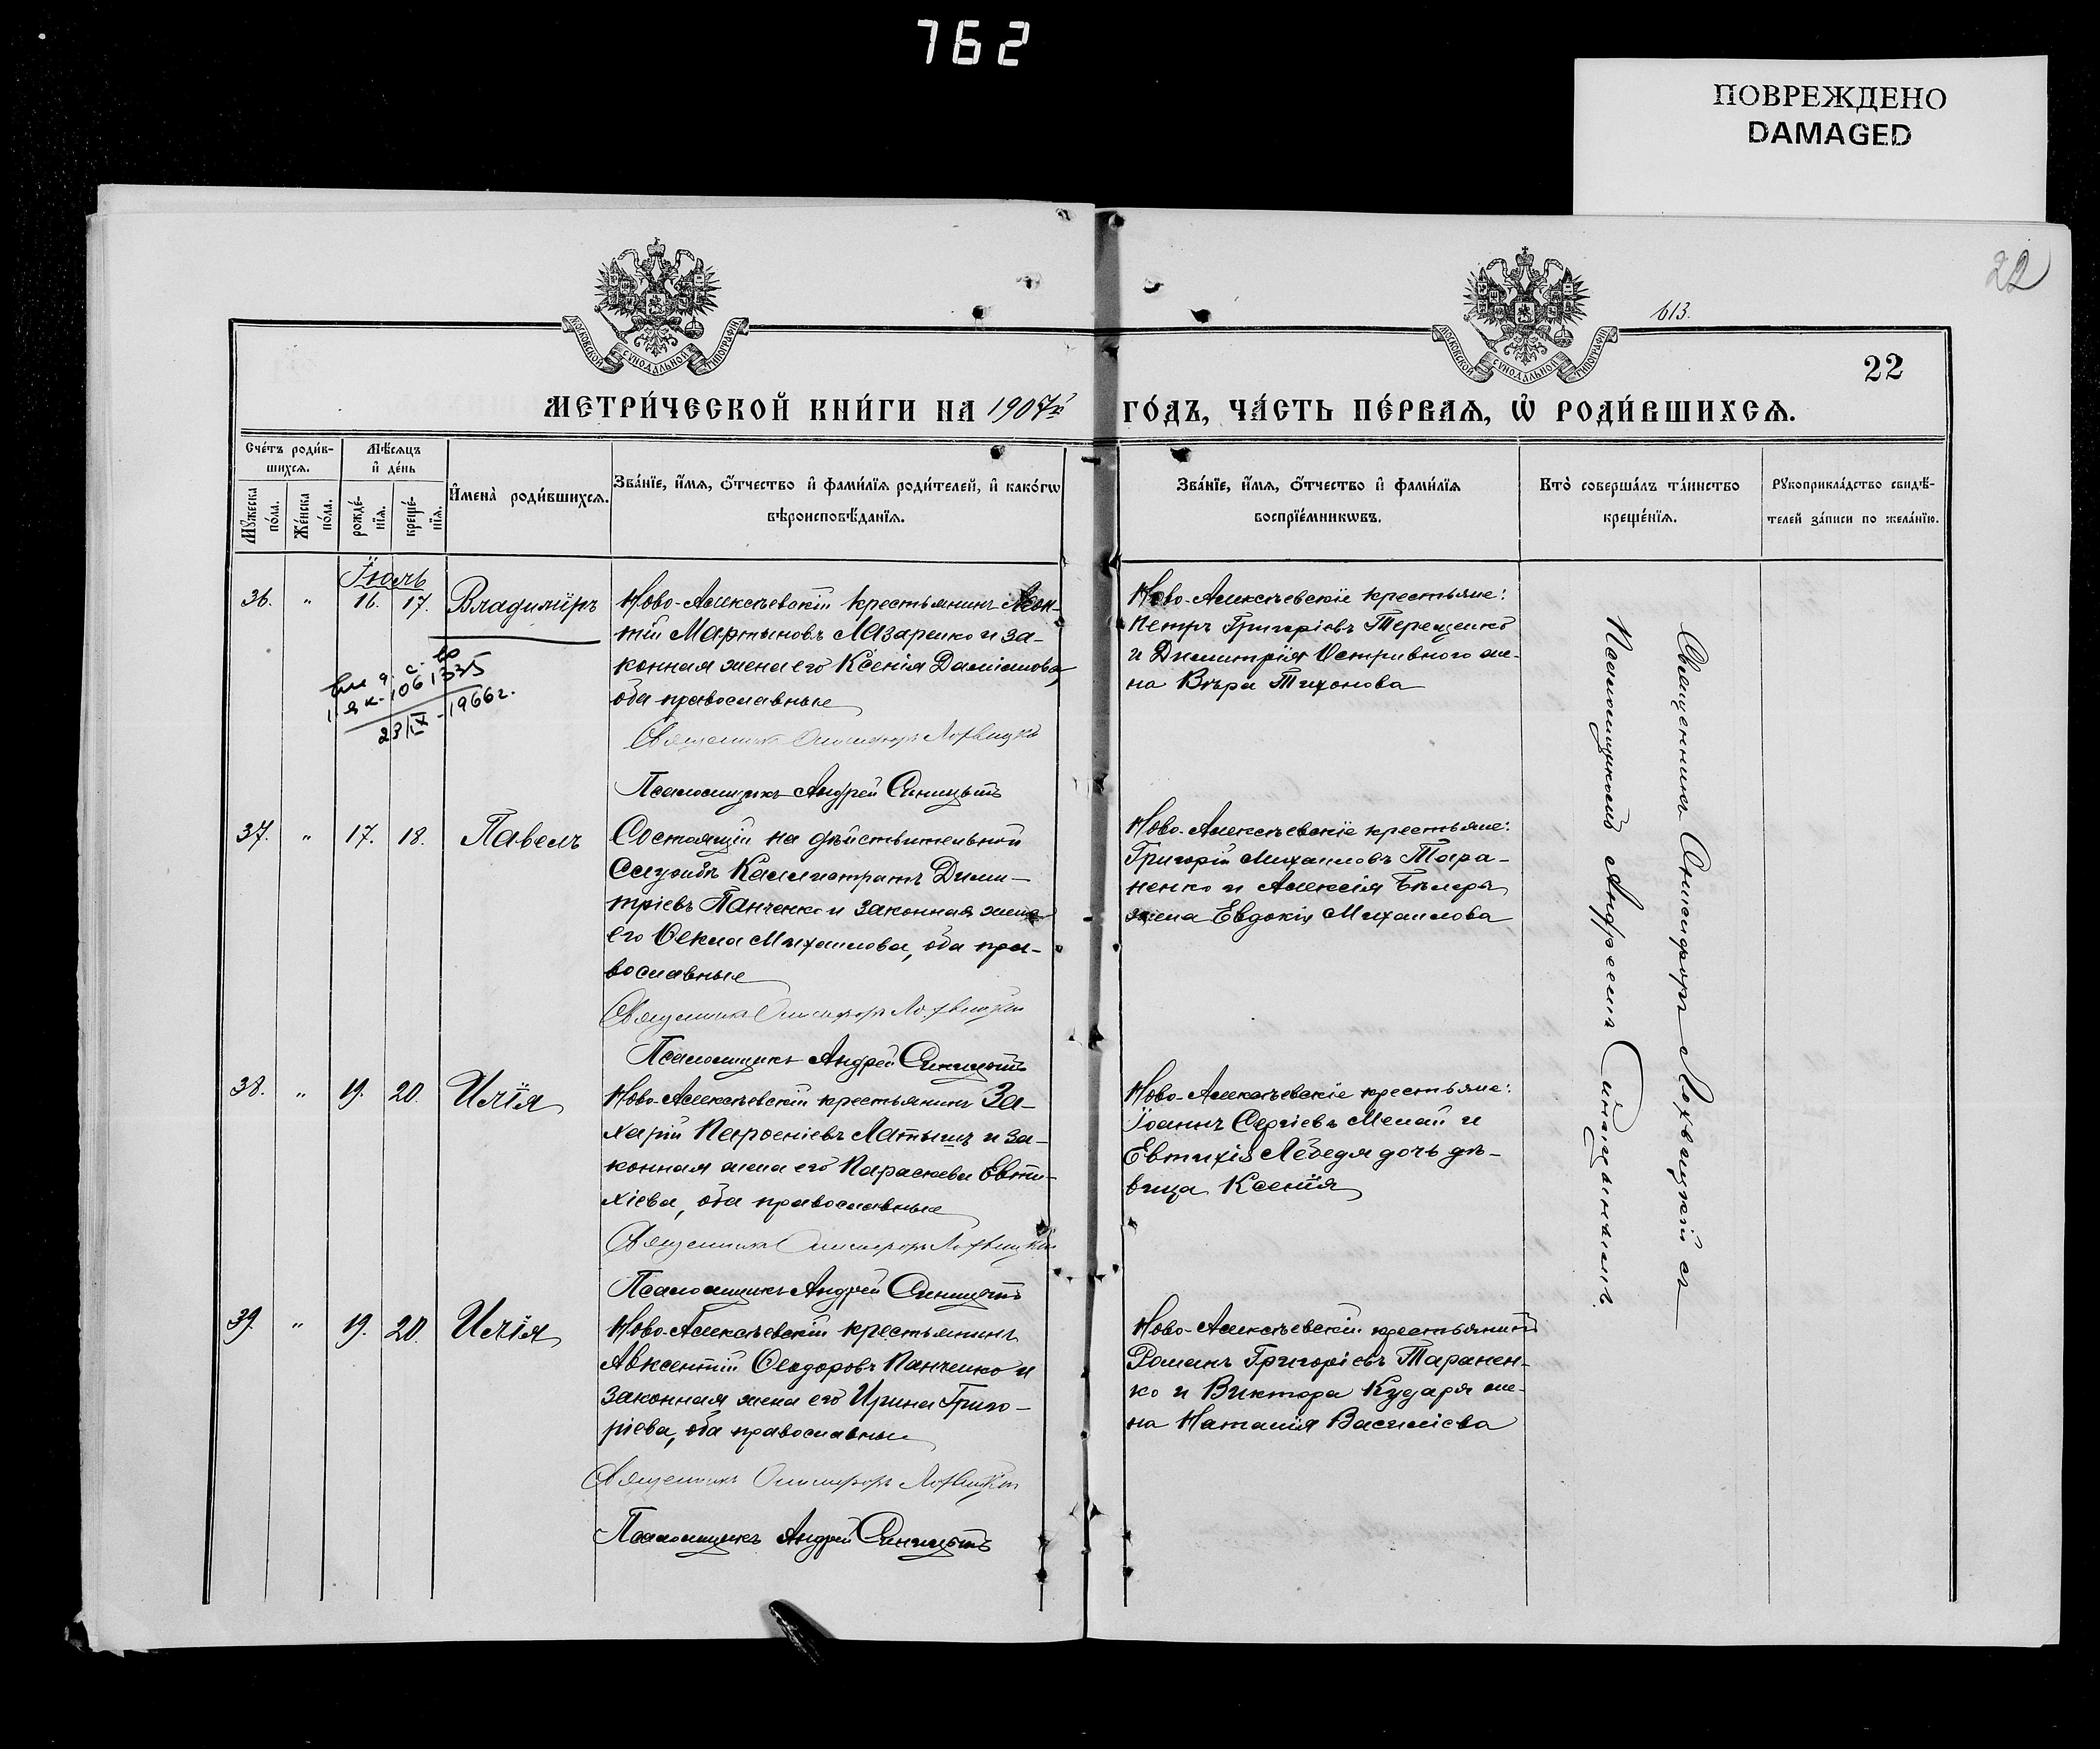 762
ПОВРЕЖДЕНО
DAMAGED
22
613.
22
МОСКОВСКОЙ СѴНОДАЛЬНОЙ ТИПОГРАФІИ
МОСКОВСКОЙ СѴНОДАЛЬНОЙ ТИПОГРАФІИ
МЕТРИ́ЧЕСКОЙ КНИ́ГИ НА 1907й ГО́ДЪ, ЧА́СТЬ ПЕ́РВАЯ, Ѡ РОДИ́ВШИХСЯ.
Сче́тъ роди́в-
шихся.
Мѣсяцъ
и де́нь
Мꙋжеска по́ла.
Же́нска по́ла.
рожде́-
нія.
креще́-
нія.
Имена̀ роди́вшихся.
Зва́ніе, и́мя, о́тчество и фами́лія роди́телей, и како́гѡ
вѣроисповѣ́данія.
Зва́ніе, и́мя, о́тчество и фами́лія
воспріе́мникѡвъ.
Кто̀ соверша́лъ та́инство
креще́нія.
Рꙋкоприкла́дство свидѣ́-
телей за́писи по жела́нію.
Іюль
36. " 16. 17. Владиміръ
Ново-Алексѣевскій крестьянинъ Леон-
тій Мартыновъ Лазаренко и за-
конная жена его Ксенія Даміанова,
оба православные
Священникъ Онисифоръ Лохвицкій
Псаломщикъ Андрей Синицынъ
Ново-Алексѣевскіе крестьяне:
Петръ Григоріевъ Терещенко
и Димитрія Остривного же-
на Вѣра Тихонова
1061335
23/IX-1966г.
37. " 17. 18. Павелъ
Состоящій на дѣйствительной
службѣ Каллистратъ Дими-
тріевъ Панченко и законная жена
его Ѳекла Михаилова, оба пра-
вославные
Священникъ Онисифоръ Лохвицкій
Псаломщикъ Андрей Синицынъ
Ново-Алексѣевскіе крестьяне:
Григорій Михаиловъ Тара-
ненко и Алексія
жена Евдокія Михаилова
38. " 19. 20. Илія
Ново-Алексѣевскій крестьянинъ За-
харій Парѳеніевъ Латышъ и за-
конная жена его Параскева Евти-
хіева, оба православные
Священникъ Онисифоръ Лохвицкій
Псаломщикъ Андрей Синицынъ
Ново-Алексѣевскіе крестьяне:
Іоаннъ Сергіевъ Мелай и
Евтихія Лебедя дочь дѣ-
вица Ксенія
39. " 19. 20. Илія
Ново-Алексѣевскій крестьянинъ
Авксентій Ѳеодоровъ Панченко и
законная жена его Ирина Григо-
ріева, оба православные
Священникъ Онисифоръ Лохвицкій
Псаломщикъ Андрей Синицынъ
Ново-Алексѣевскій крестьянинъ
Романъ Григоріевъ Таранен-
ко и Виктора Кударя же-
на Наталія Василіева
Священникъ Онисифоръ Лохвицкій съ
Псаломщикомъ Андреемъ Синицынымъ.